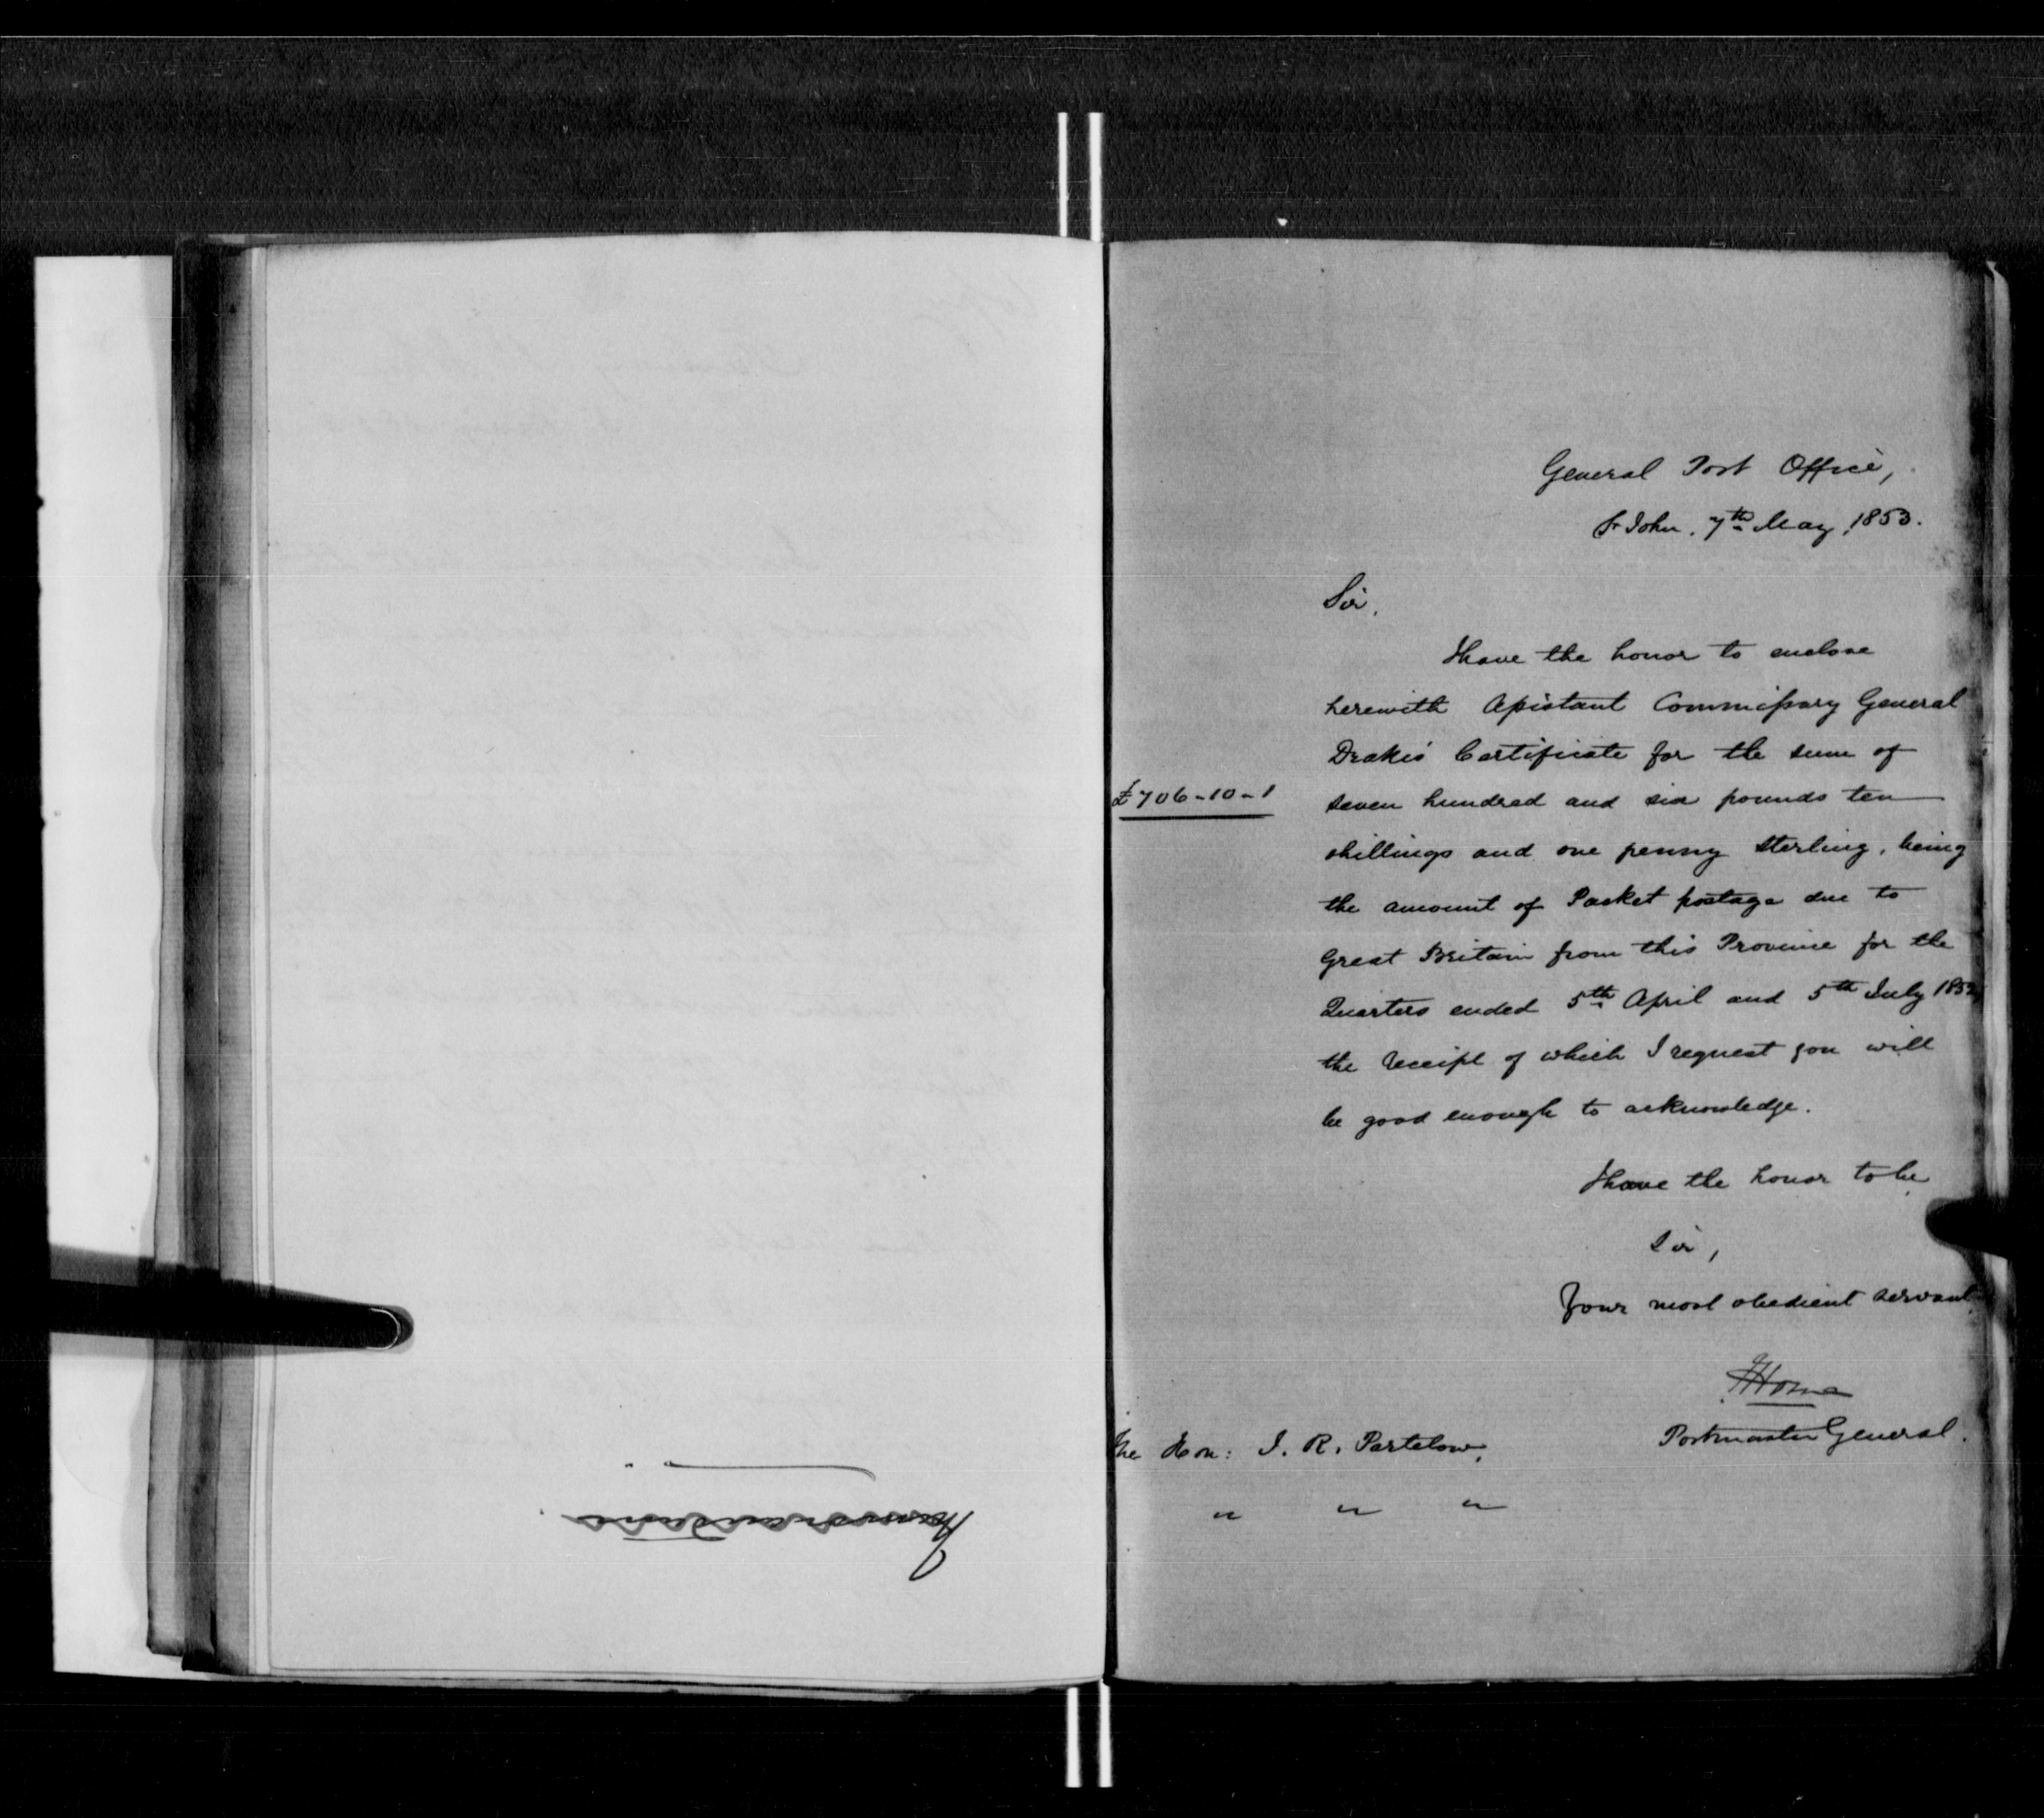 General Post Office,
St John. 7th May, 1853.
Sir,
I have the honor to enclose
herewith Assistant Commissary General
Drake's Certificate for the sum of
£706-10-1
seven hundred and six pounds ten
shillings and one penny sterling, being
the amount of Packet postage due to
Great Britain from this Province for the
Quarters ended 5th April and 5th July 1852,
the receipt of which I request you will
be good enough to acknowledge.
I have the honor to be
Sir,
Your most obedient servant
Postmaster General.
The Hon: J. R. Partelow,
" " "